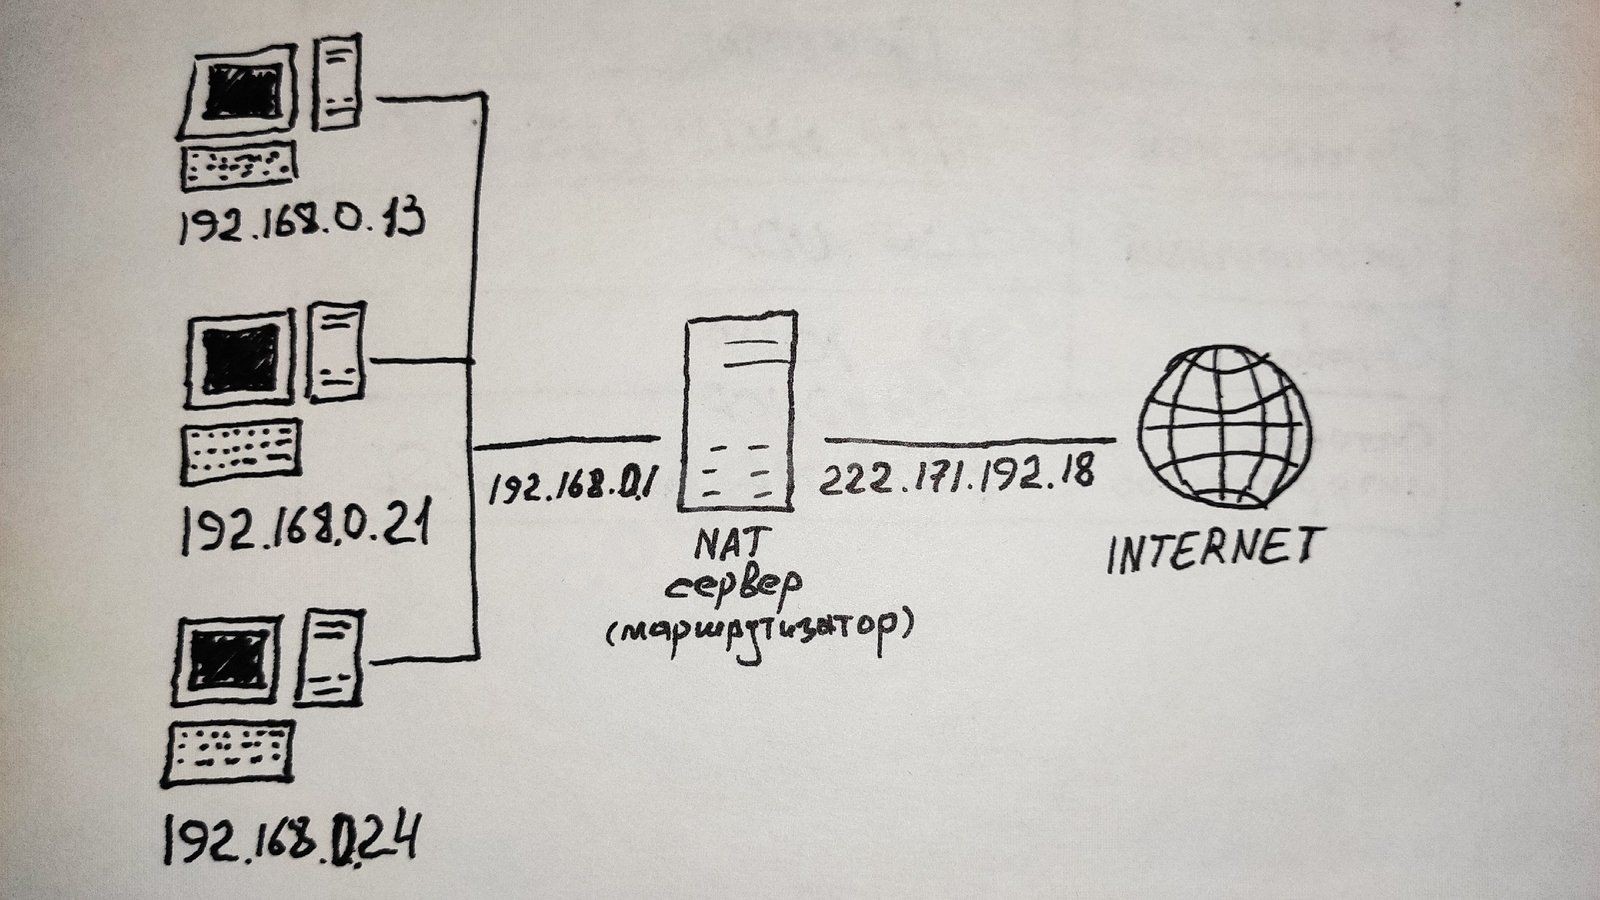 192.168.0.13
192.168.0.21
192.168.0.1
222.171.192.18
NAT
сервер
(маршрутизатор)
INTERNET
192.168.0.24